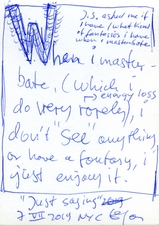 J.S. asked me if
i have / what kind
of fantasies i have
when i masturbate
When i mastur-
bate, (which i
do very rarely), i
energy loss
don't "see" anything
or have a fantasy, i
just enjoy it.
"Just saying"
7 VII 2019 NYC